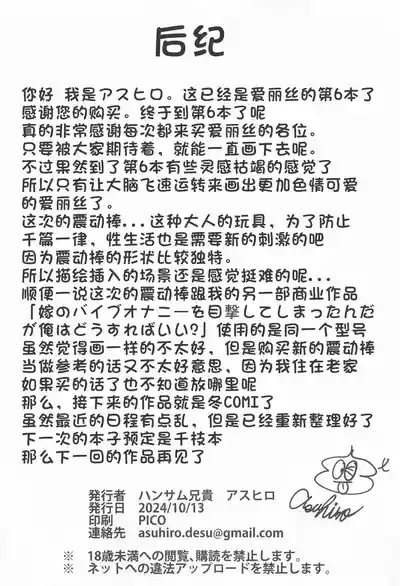 后纪
你好 我是アスヒロ。这已经是爱丽丝的第6本了
感谢您的购买。终于到第6本了呢
真的非常感谢每次都来买爱丽丝的各位。
只要被大家期待着，就能一直画下去呢。
不过果然到了第6本有些灵感枯竭的感觉了
所以只有让大脑飞速运转来画出更加色情可爱
的爱丽丝了。
这次的震动棒...这种大人的玩具，为了防止
千篇一律，性生活也是需要新的刺激的吧
因为震动棒的形状比较独特。
所以描绘插入的场景还是感觉挺难的呢...
顺便一说这次的震动棒跟我的另一部商业作品
「嫁のバイブオナニーを目撃してしまったんだ
が俺はどうすればいい?」使用的是同一个型号
虽然觉得画一样的不太好，但是购买新的震动棒
当做参考的话又不太好意思，因为我住在老家
如果买的话了也不知道放哪里呢
那么，接下来的作品就是冬COMI了
虽然最近的日程有点乱，但是已经重新整理好了
下一次的本子预定是千枝本
那么下一回的作品再见了
発行者 ハンサム兄貴 アスヒロ
発行日 2024/10/13
印刷 PICO
連絡先 asuhiro.desu@gmail.com
asuhiro
※ 18歳未満への閲覧、購読を禁止します。
※ ネットへの違法アップロードを禁止します。